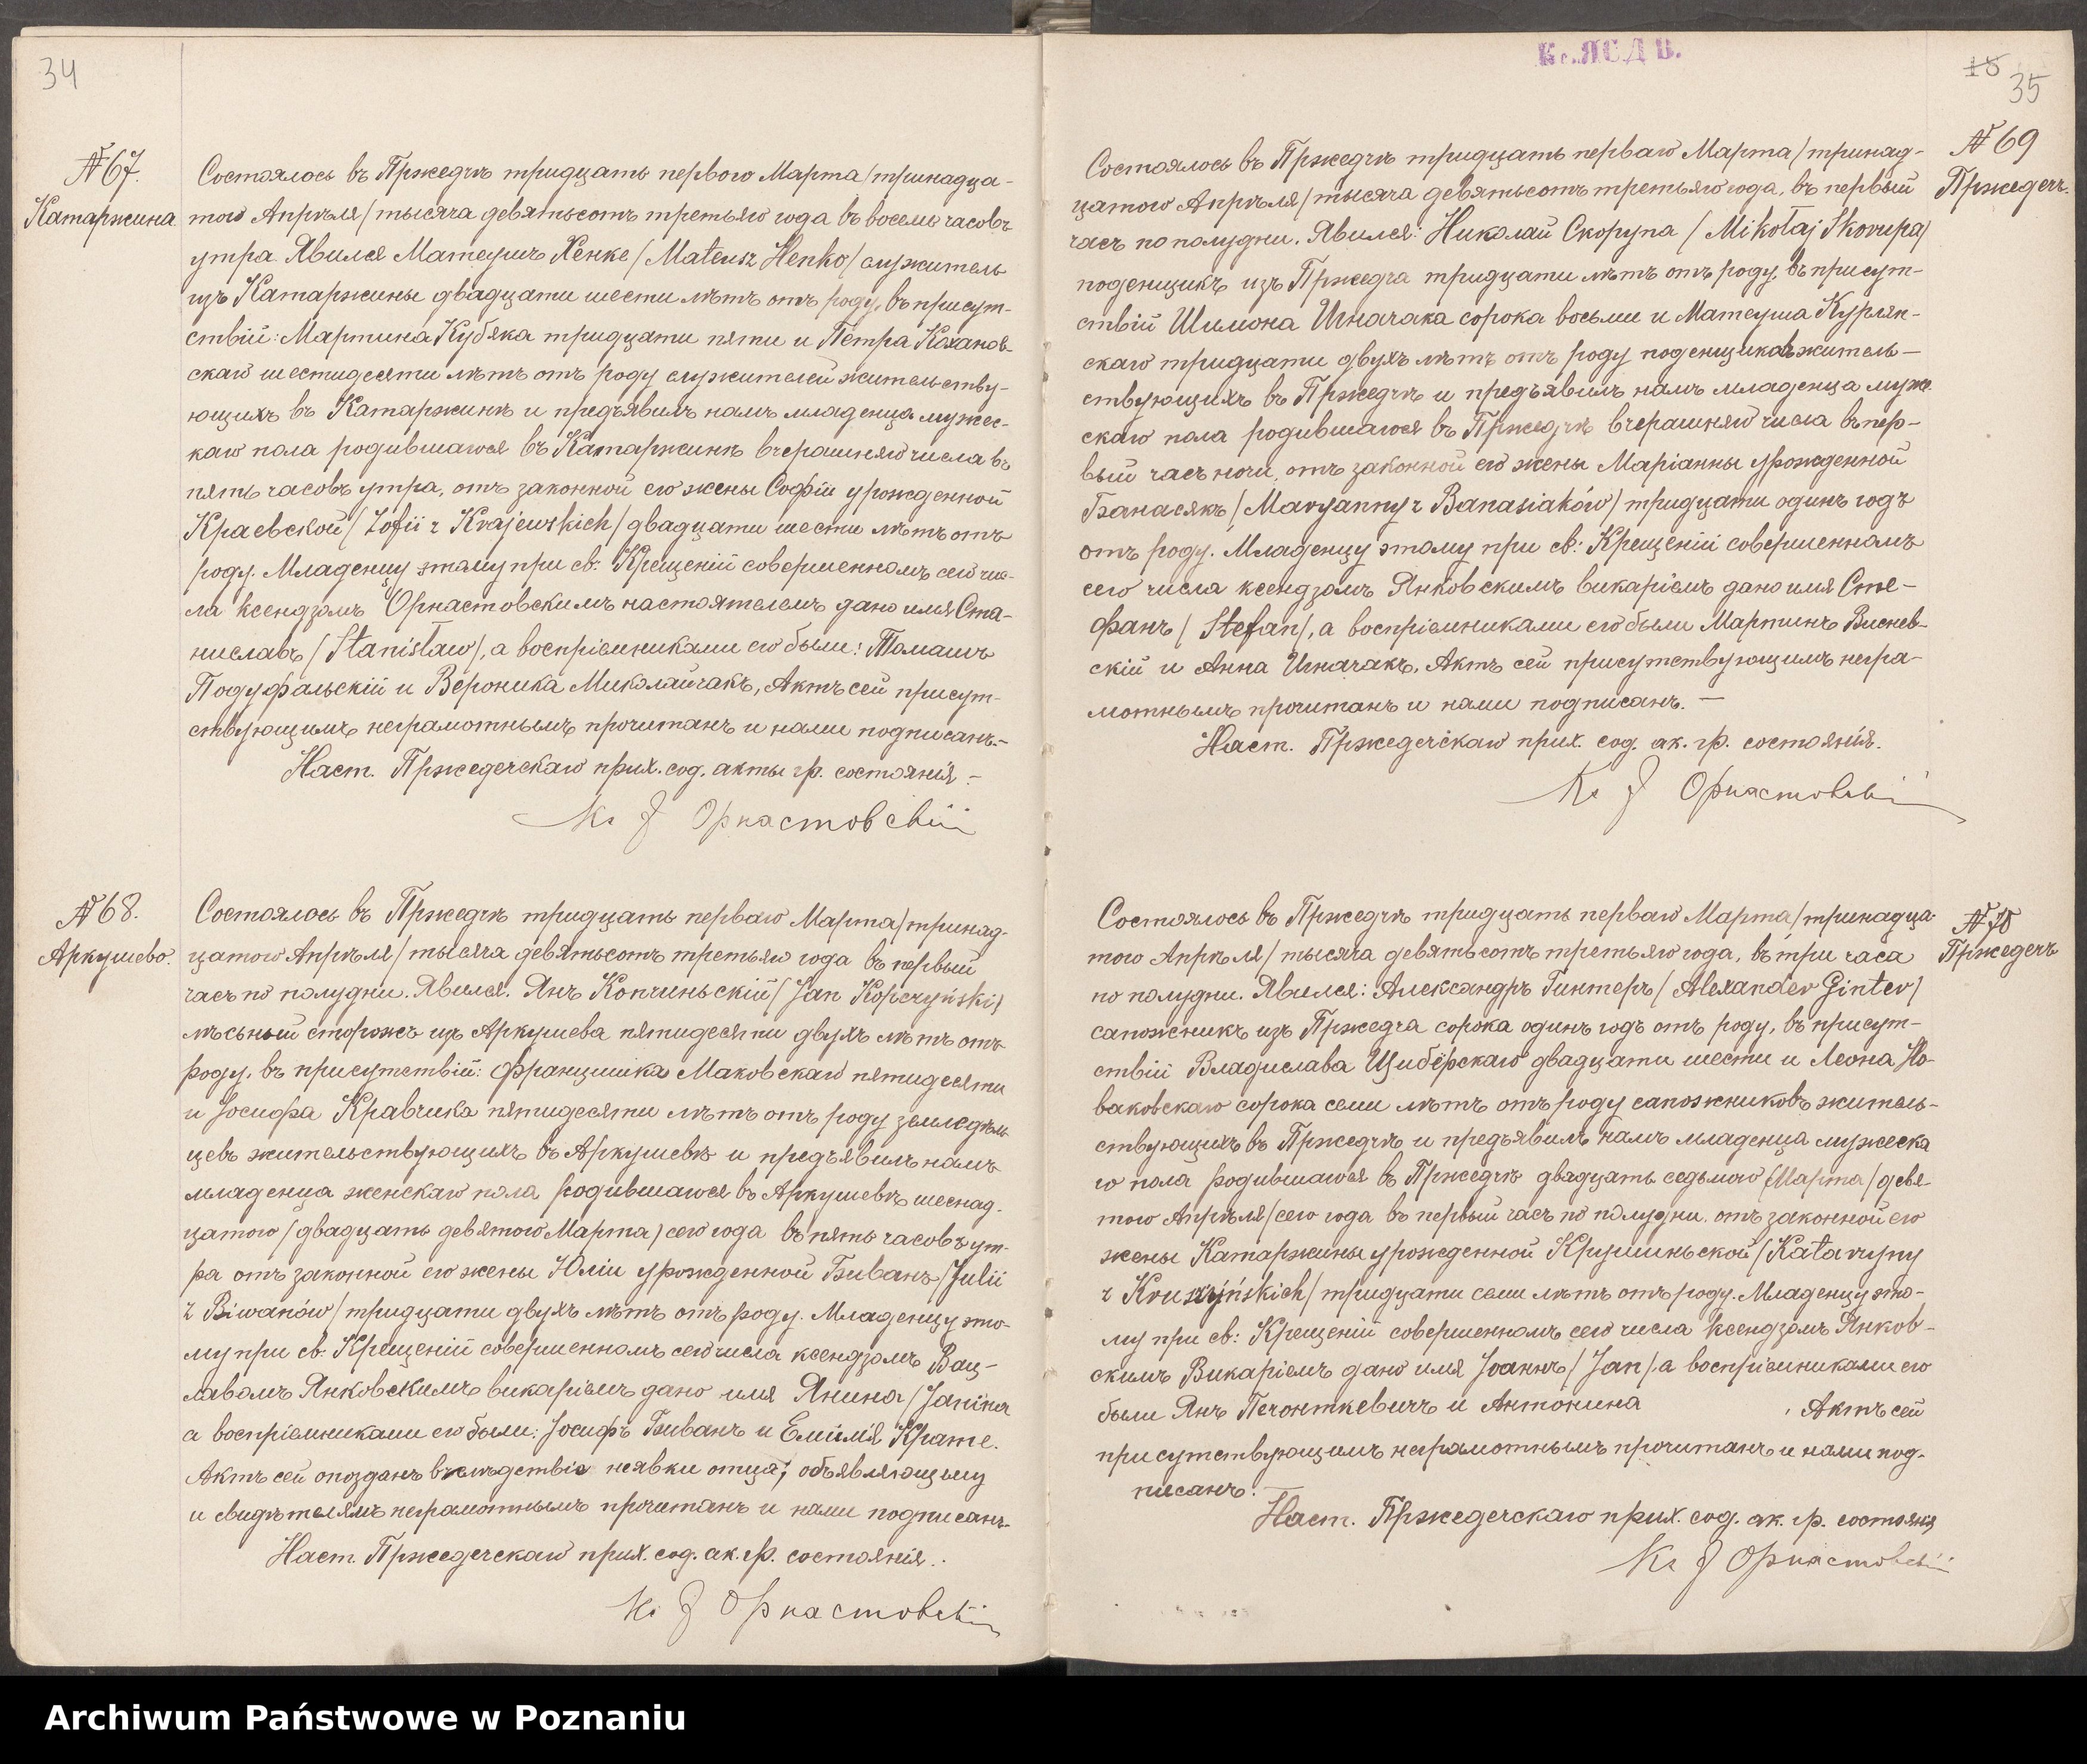 34
№ 67.
Катаржина.
Состоялось въ Пржедчѣ тридцать перваго Марта /тринадца-
таго Апрѣля/ тысяча девятьсотъ третьяго года въ восемь часовъ
утра. Явился Матеушъ Хенке /Mateusz Henko/ служитель
изъ Катаржины двадцати шести лѣтъ отъ роду, въ присут-
ствіи: Мартина Кубяка тридцати пяти и Петра Коханов-
скаго шестидесяти лѣтъ отъ роду служителей жительству-
ющихъ въ Катаржинѣ и предъявилъ намъ младенца мужес-
каго пола родившагося въ Катаржинѣ вчерашняго числа въ
пять часовъ утра, отъ законной его жены Софіи урожденной
Краевской /Zofii z Krajewskich/ двадцати шести лѣтъ отъ
роду. Младенцу этому при св: Крещеніи совершенномъ сего чис-
ла ксендзомъ Орнастовскимъ настоятелемъ дано имя Ста-
ниславъ /Stanisław/, а воспріемниками его были: Томашъ
Подуфальскій и Вероника Миколайчакъ, Актъ сей присут-
ствующимъ неграмотнымъ прочитанъ и нами подписанъ.-
Наст. Пржедечскаго прих. сод. акты гр. состоянія -
Кс J Орнастовскій
№ 68.
Аркушево.
Состоялось въ Пржедчѣ тридцать перваго Марта /тринад-
цатого Апрѣля/ тысяча девятьсотъ третьяго года въ первый
часъ по полудни. Явился. Янъ Копчиньскій /Jan Kopczyński/
лѣсный сторожъ изъ Аркушева пятидесяти двухъ лѣтъ отъ
роду, въ присутствій: Францишка Маковскаго пятидесяти
и Іосифа Кравчика пятидесяти лѣтъ отъ роду земледѣль-
цевъ жительствующихъ въ Аркушевѣ и предъявилъ намъ
младенца женскаго пола родившагося въ Аркушевѣ шеснад-
цатого /двадцать девятого Марта/ сего года въ пять часовъ ут-
ра отъ законной его жены Юліи урожденной Биванъ /Julii
z Biwanów/ тридцати двухъ лѣтъ отъ роду. Младенцу это-
му при св. Крещеній совершенномъ сего числа ксендзомъ Вац-
лавомъ Янковскимъ викаріемъ дано имя Янина /Janina
а воспріемниками его были: Іосифъ Биванъ и Емилія Крате.
Актъ сей опозданъ вслѣдствіе неявки отца; объявляющему
и свидѣтелямъ неграмотнымъ прочитанъ и нами подписанъ.
Наст. Пржедечскаго прих. сод. ак. гр. состоянія.
Кс J Орнастовскій
15
35
№ 69
Пржедечъ.
Состоялось въ Пржедчѣ тридцать перваго Марта /тринад-
цатого Апрѣля/ тысяча девятьсотъ третьяго года, въ первый
часъ по полудни. Явился: Николай Скорупа /Mikołaj Skorupa/
поденщикъ изъ Пржедча тридцати лѣтъ отъ роду, въ присут-
ствіи Шимона Игначака сорока восьми и Матеуша Курлян-
скаго тридцати двухъ лѣтъ отъ роду поденщиковъ житель-
ствующихъ въ Пржедчѣ и предъявилъ намъ младенца муже
скаго пола родившагося въ Пржедчѣ вчерашняго числа въ пер-
вый часъ ночи, отъ законной его жены Маріанны урожденной
Банасякъ /Maryanny z Banasiaków/ тридцати одинъ годъ
отъ роду. Младенцу этому при св: Крещеніи совершенномъ
сего числа ксендзомъ Янковскимъ викаріемъ дано имя Сте-
фанъ /Stefan/, а воспріемниками его были Мартинъ Виснев-
скій и Анна Игначакъ. Актъ сей присутствующимъ негра-
мотнымъ прочитанъ и нами подписанъ. —
Наст. Пржедечскаго прих. сод. ак. гр. состоянія.
Кс J Орнастовскій
№ 70
Пржедечъ
Состоялось въ Пржедчѣ тридцать перваго Марта /тринадца-
того Апрѣля/ тысяча девятьсотъ третьяго года, въ три часа
по полудни. Явился: Александръ Гинтеръ /Alexander Ginter/
сапожникъ изъ Пржедча сорока одинъ годъ отъ роду, въ присут-
ствіи Владислава Щибёрскаго двадцати шести и Леона Но-
ваковскаго сорока семи лѣтъ отъ роду сапожниковъ житель-
ствующихъ въ Пржедчѣ и предъявилъ намъ младенца мужеска
го пола родившагося въ Пржедчѣ двадцать седьмого Марта /девя-
того Апрѣля/ сего года въ первый часъ по полудни, отъ законной его
жены Катаржины урожденной Крушиньской /Katarzyny
z Kruszyńskich/ тридцати семи лѣтъ отъ роду. Младенцу это-
му при св: Крещеніи совершенномъ сего числа ксендзомъ Янков-
скимъ Викаріемъ дано имя Іоаннъ /Jan/, а воспріемниками его
были Янъ Печонткевичъ и Антонина , Актъ сей
присутствующимъ неграмотнымъ прочитанъ и нами под-
писанъ. —
Наст. Пржедечскаго прих. сод. ак. гр. состоянія
Кс J Орнастовскій
Archiwum Państwowe w Poznaniu